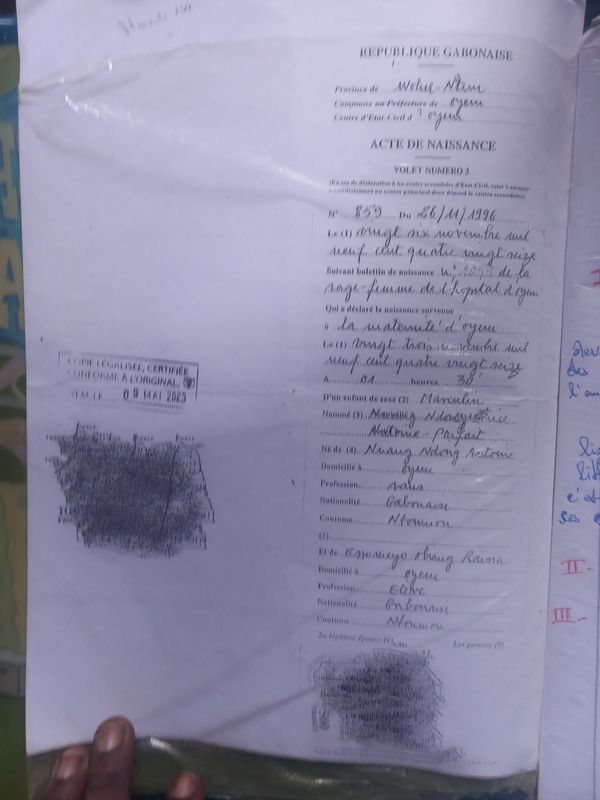 REPUBLIQUE GABONAISE
Province de Woleu-Ntem
Commune ou Préfecture de oyem
Centre d'Etat-Civil d' oyem
ACTE DE NAISSANCE
VOLET NUMERO 3
(En cas de déclaration à un centre secondaire d'Etat-Civil, volet à envoyer
immédiatement au centre principal dont dépend le centre secondaire)
N° 859 Du 26/11/1996
Le (1) vingt six novembre mil
neuf cent quatre vingt seize
Suivant bulletin de naissance n° de la
sage-femme de l'hopital d'oyem
Qui a déclaré la naissance survenue
à la maternité d'oyem
Le (1) vingt trois novembre mil
neuf cent quatre vingt seize
A 01 heures 30'
D'un enfant de sexe (2) Masculin
Nommé (3) Nkwang Ndong
Antoine - Parfait
Né de (4) Nwang Ndong Antoine
Domicilié à oyem
Profession sans
Nationalité Gabonaise
Coutume Ntoumou
(5)
Et de Essomeyo Obang Raissa
Domicilié à oyem
Profession Elève
Nationalité Gabonaise
Coutume Ntoumou
Sa légitime épouse (6)
Les parents (7)
COPIE LEGALISÉE, CERTIFIÉE
CONFORME A L'ORIGINAL.
YEM, LE 09 MAI 2023
II -
III -